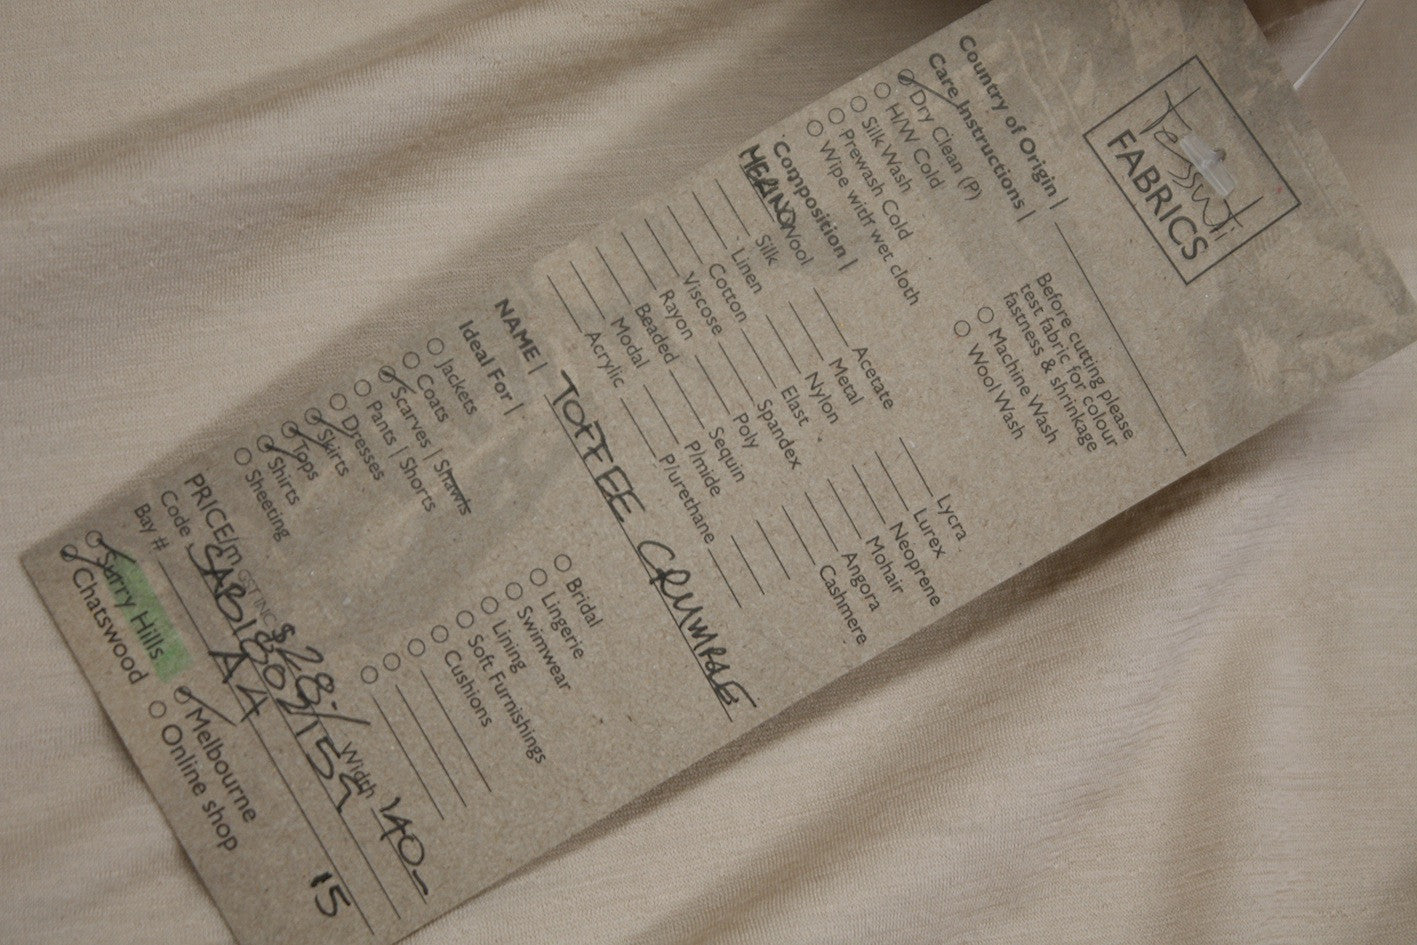 Tessuti
FABRICS
Country of Origin |
Care Instructions |
Dry Clean (P)
H/W Cold
Silk Wash
Prewash Cold
Wipe with wet cloth
Before cutting please
test fabric for colour
fastness & shrinkage
Machine Wash
Wool Wash
Composition |
MERINO Wool
Silk
Linen
Cotton
Viscose
Rayon
Beaded
Modal
Acrylic
Acetate
Metal
Nylon
Elast
Spandex
Poly
Sequin
P/mide
P/urethane
Lycra
Lurex
Neoprene
Mohair
Angora
Cashmere
NAME | TOFFEE CRUMPLE
Ideal For |
Jackets
Coats
Scarves | Shawls
Pants | Shorts
Dresses
Skirts
Tops
Shirts
Sheeting
Bridal
Lingerie
Swimwear
Lining
Soft Furnishings
Cushions
PRICE/m GST INC $28-/ Width 140-
Code
Bay # A4 15
Surry Hills
Chatswood
Melbourne
Online shop